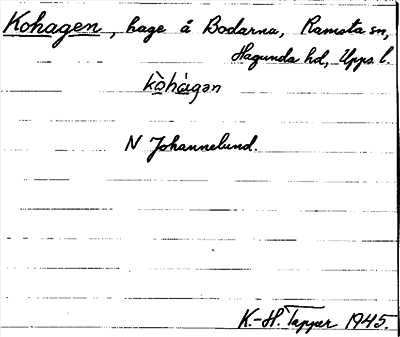 Kohagen, hage å Bodarna, Ramsta sn,
Hagunda hd, Upps. l.
kòhàgən
N Johannelund.
K.-H. Tapper 1945.